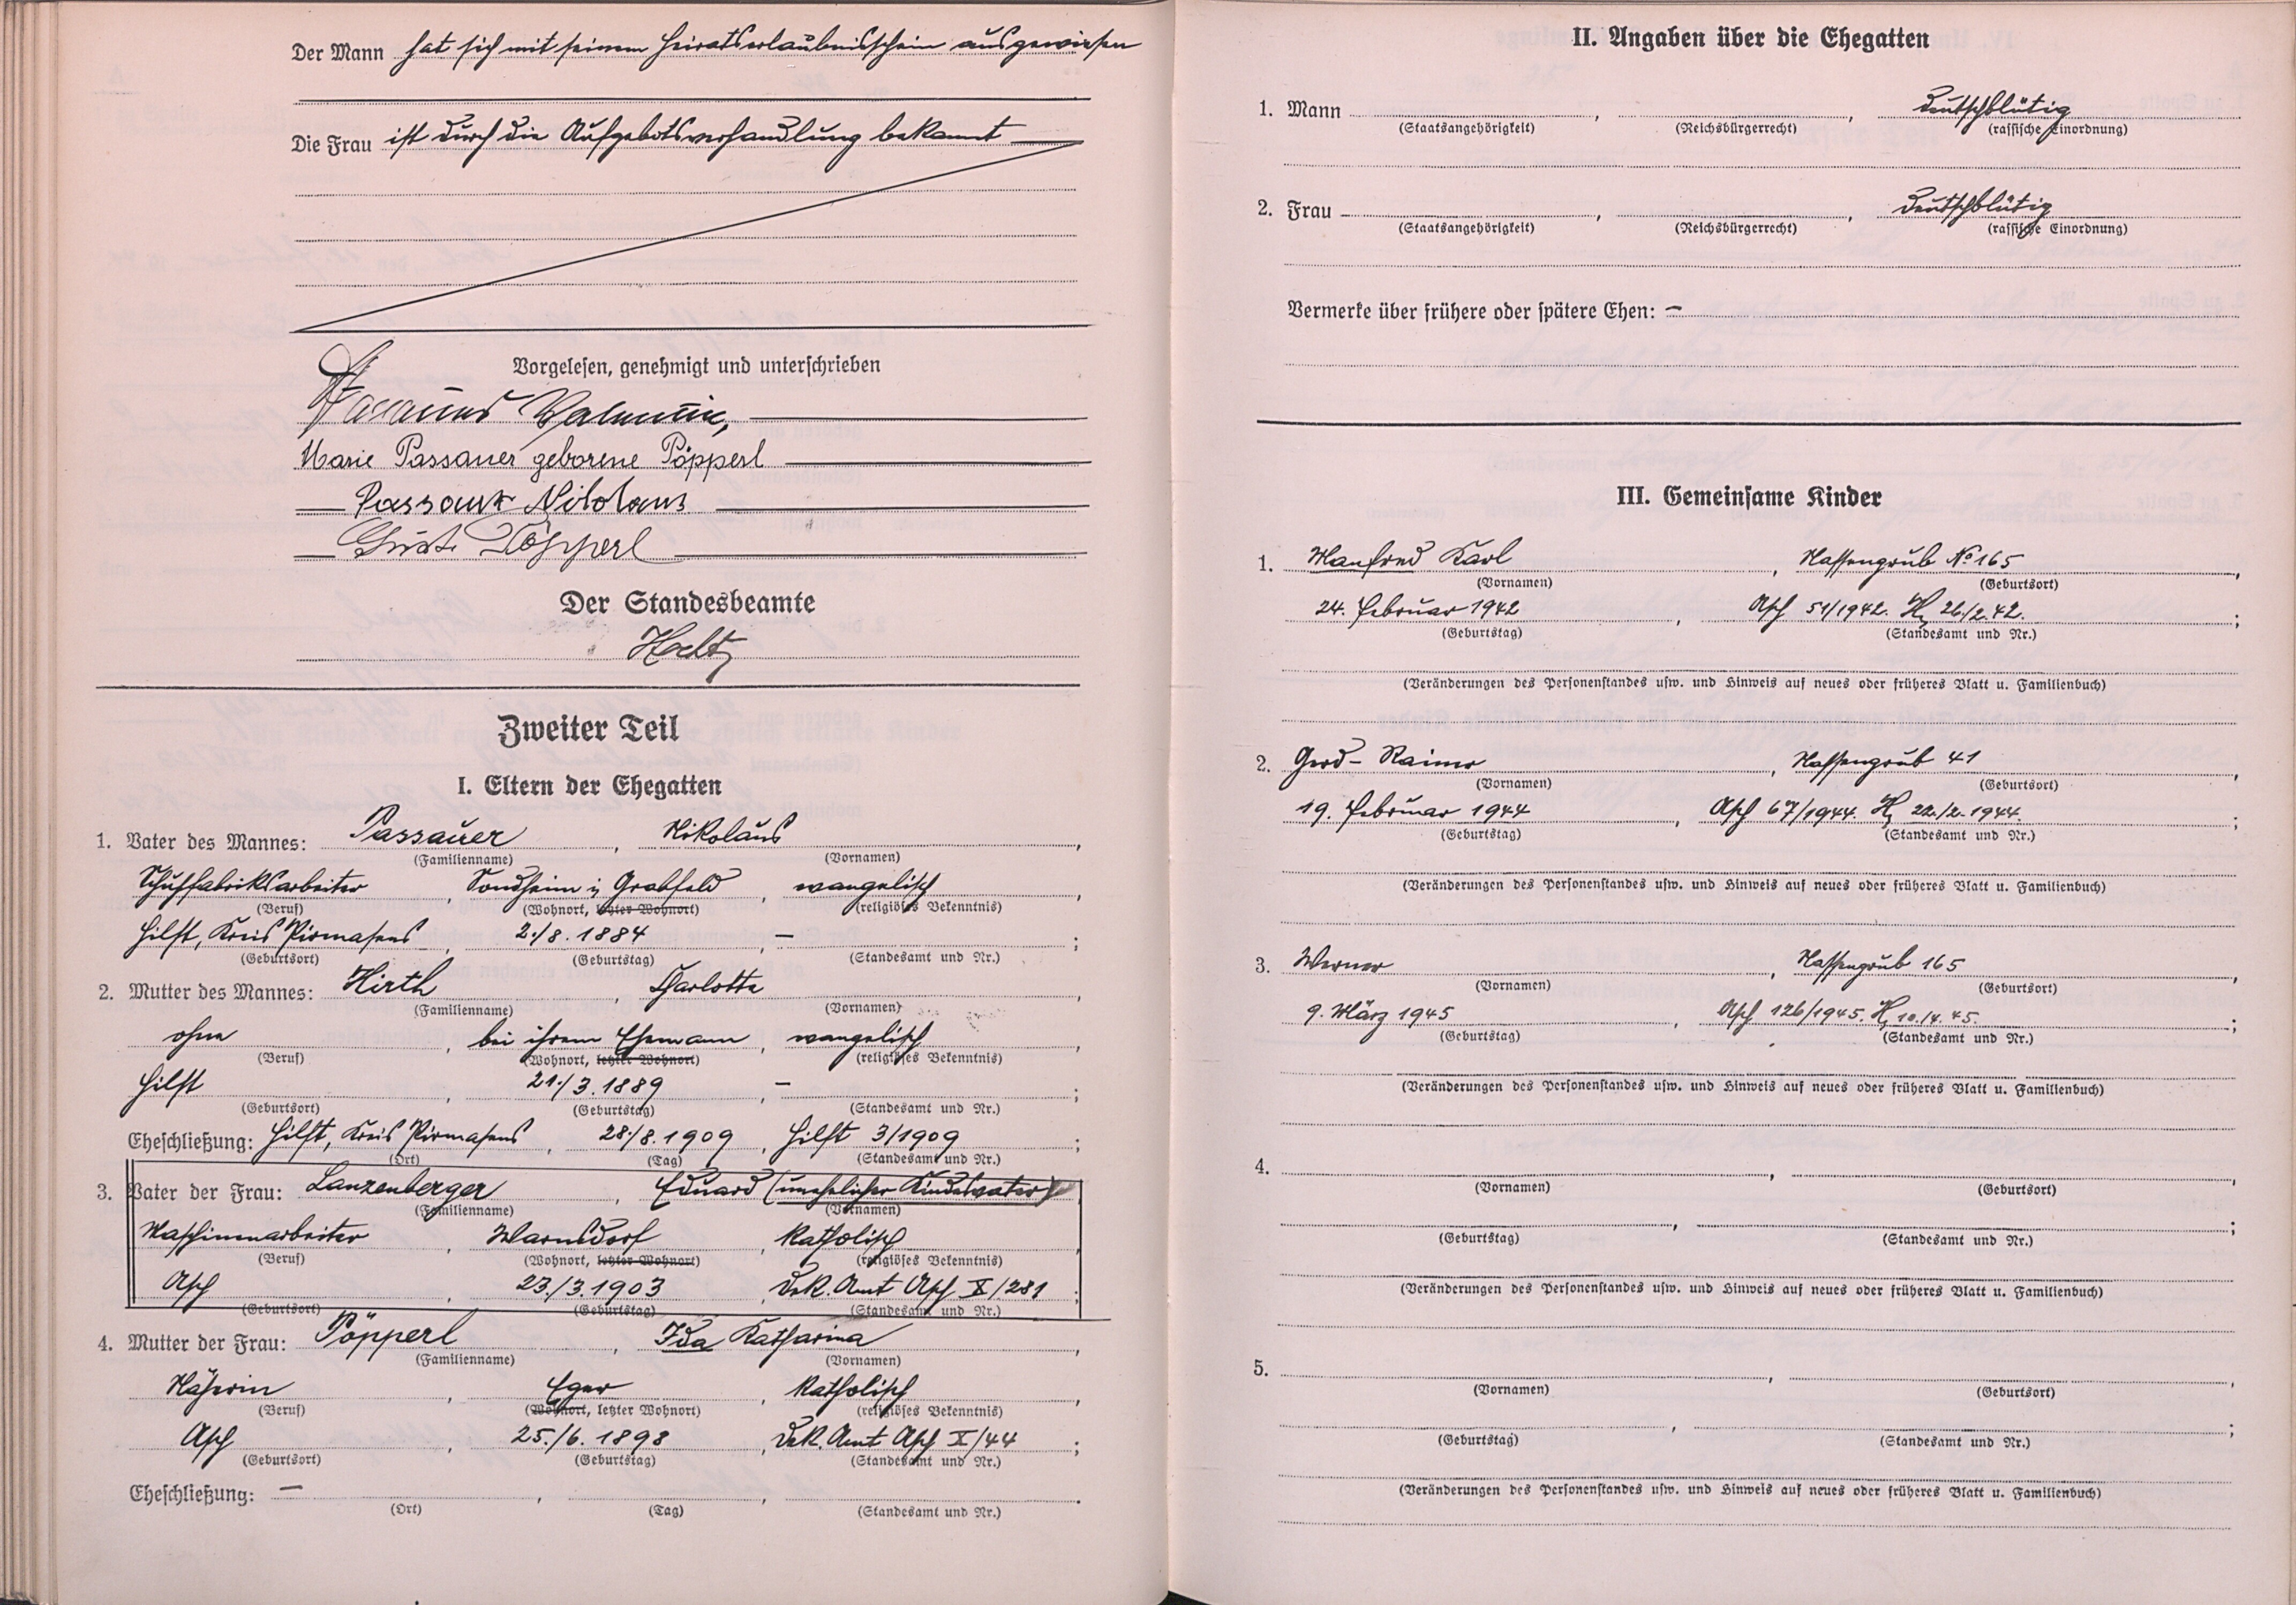 Der Mann hat sich mit seinem Heiratserlaubnisschein ausgewiesen
Die Frau ist durch die Aufgebotsverhandlung bekannt
Vorgelesen, genehmigt und unterschrieben
Passauer Valentin,
Marie Passauer geborene Pöpperl
Passauer Nikolaus
Pöpperl
Der Standesbeamte
Zweiter Teil
I. Eltern der Ehegatten
1. Vater des Mannes: Passauer, Nikolaus,
(Familienname) (Vornamen)
Schuhfabriksarbeiter, Sondheim i Grabfeld, evangelisch,
(Beruf) (Wohnort, letzter Wohnort) (religiöses Bekenntnis)
Hilst, Kreis Pirmasens, 2./8. 1884, — ;
(Geburtsort) (Geburtstag) (Standesamt und Nr.)
2. Mutter des Mannes: Hirth, Charlotte,
(Familienname) (Vornamen)
ohne, bei ihrem Ehemann, evangelisch,
(Beruf) (Wohnort, letzter Wohnort) (religiöses Bekenntnis)
Hilst, 21./3. 1889, — ;
(Geburtsort) (Geburtstag) (Standesamt und Nr.)
Eheschließung: Hilst, Kreis Pirmasens, 28./8. 1909, Hilst 3/1909 ;
(Ort) (Tag) (Standesamt und Nr.)
3. Vater der Frau: Lanzenberger, Eduard (unehelicher Kindesvater)
(Familienname) (Vornamen)
Maschinenarbeiter, Warnsdorf, katholisch,
(Beruf) (Wohnort, letzter Wohnort) (religiöses Bekenntnis)
Asch, 23./3. 1903, Dek. Amt Asch X/281 ;
(Geburtsort) (Geburtstag) (Standesamt und Nr.)
4. Mutter der Frau: Pöpperl, Ida Katharina,
(Familienname) (Vornamen)
Näherin, Eger, katholisch,
(Beruf) (Wohnort, letzter Wohnort) (religiöses Bekenntnis)
Asch, 25./6. 1898, Dek. Amt Asch X/44 ;
(Geburtsort) (Geburtstag) (Standesamt und Nr.)
Eheschließung: — , , .
(Ort) (Tag) (Standesamt und Nr.)
II. Angaben über die Ehegatten
1. Mann , , deutschblütig
(Staatsangehörigkeit) (Reichsbürgerrecht) (rassische Einordnung)
2. Frau , , deutschblütig
(Staatsangehörigkeit) (Reichsbürgerrecht) (rassische Einordnung)
Vermerke über frühere oder spätere Ehen: —
III. Gemeinsame Kinder
1. Manfred Karl, Nassengrub No 165,
(Vornamen) (Geburtsort)
24. Februar 1942, Asch 51/1942. H 26./2. 42. ;
(Geburtstag) (Standesamt und Nr.)
(Veränderungen des Personenstandes usw. und Hinweis auf neues oder früheres Blatt u. Familienbuch)
2. Gerd-Rainer, Nassengrub 41,
(Vornamen) (Geburtsort)
19. Februar 1944, Asch 67/1944. H 22./2. 1944. ;
(Geburtstag) (Standesamt und Nr.)
(Veränderungen des Personenstandes usw. und Hinweis auf neues oder früheres Blatt u. Familienbuch)
3. Werner, Nassengrub 165,
(Vornamen) (Geburtsort)
9. März 1945, Asch 126/1945. H 10./4. 45. ;
(Geburtstag) (Standesamt und Nr.)
(Veränderungen des Personenstandes usw. und Hinweis auf neues oder früheres Blatt u. Familienbuch)
4. , ,
(Vornamen) (Geburtsort)
, ;
(Geburtstag) (Standesamt und Nr.)
(Veränderungen des Personenstandes usw. und Hinweis auf neues oder früheres Blatt u. Familienbuch)
5. , ,
(Vornamen) (Geburtsort)
, ;
(Geburtstag) (Standesamt und Nr.)
(Veränderungen des Personenstandes usw. und Hinweis auf neues oder früheres Blatt u. Familienbuch)